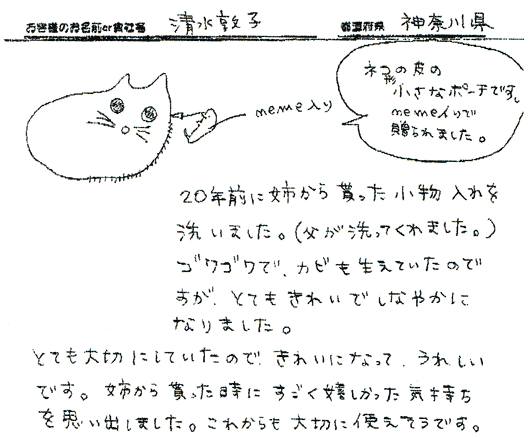 お客様のお名前or会社名 清水敦子 都道府県 神奈川県
ネコ形の皮の
小さなポーチです。
meme入りで
贈られました。
meme入り
20年前に姉から貰った小物入れを
洗いました。(父が洗ってくれました。)
ゴワゴワで、カビも生えていたので
すが、とてもきれいでしなやかに
なりました。
とても大切にしていたので、きれいになって、うれしい
です。姉から貰った時にすごく嬉しかった気持ち
を思い出しました。これからも大切に使えそうです。